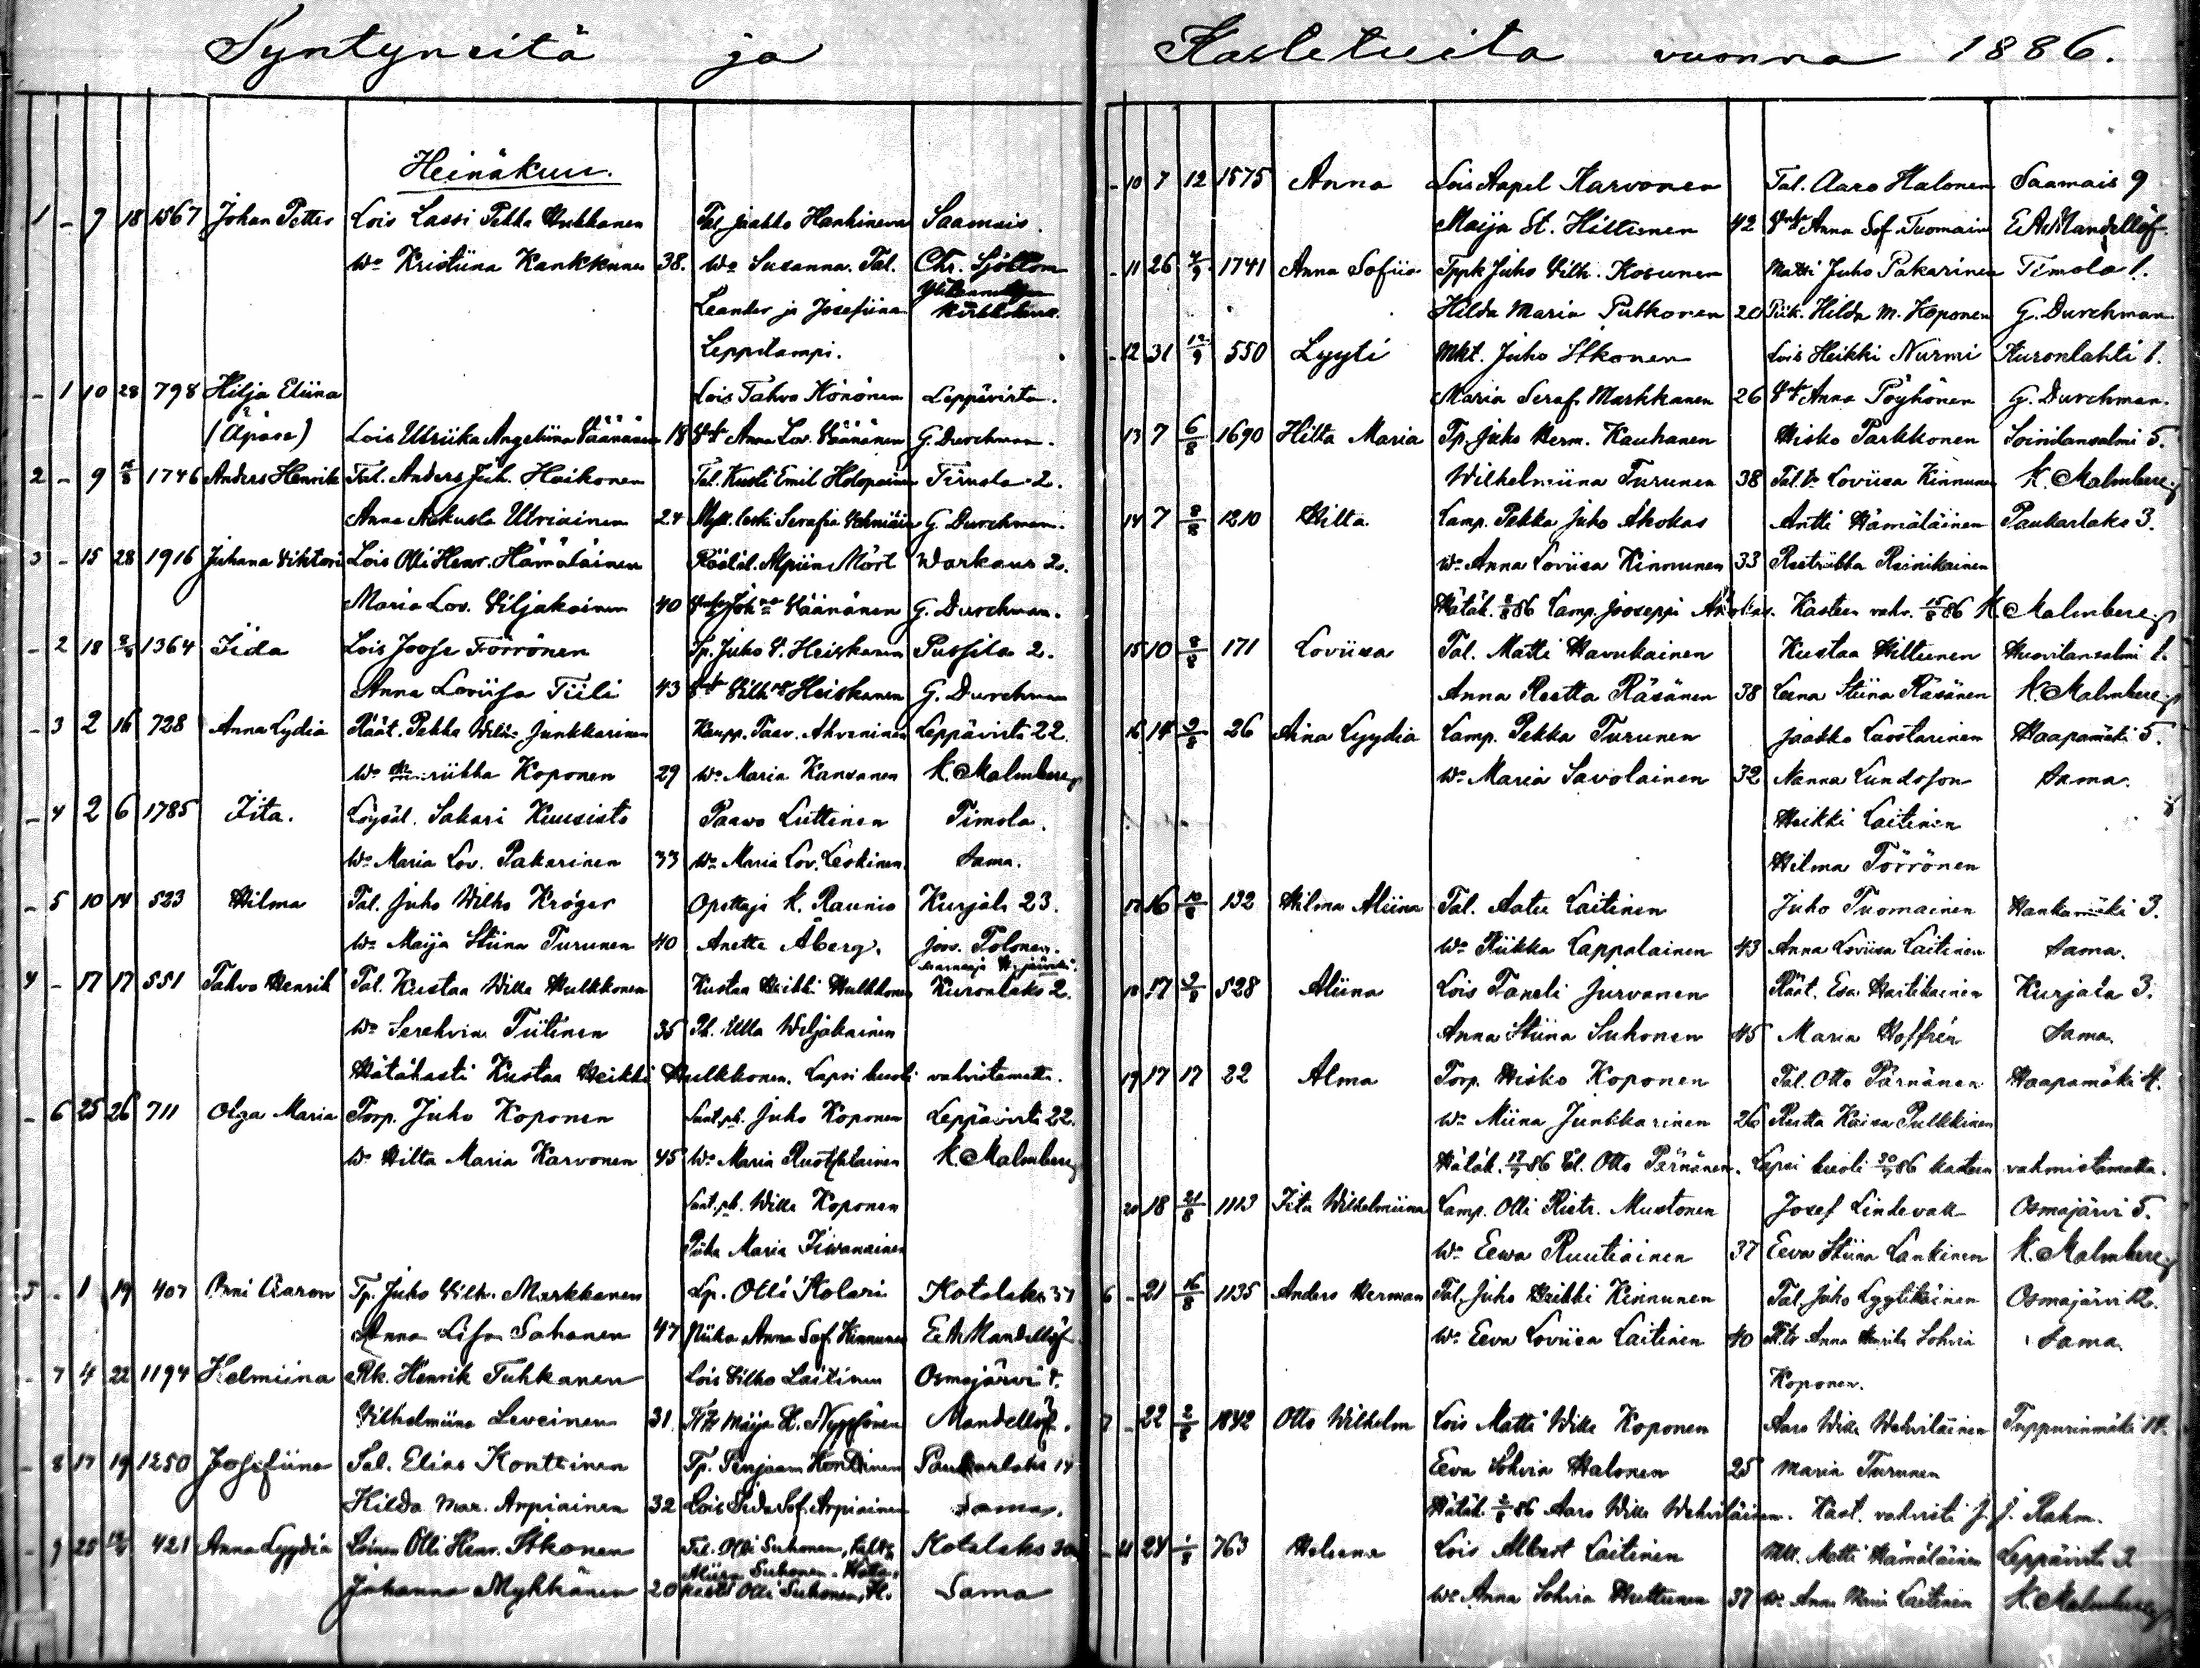 Syntyneitä ja Kastetuita vuonna 1886.
Heinäkuu.
1 - 7 18 1567 Johan Petter Lois Lassi Pekka Hukkanen Tal. Jaakko Hankinen Saamais.
Wo Kristiina Kankkunen 38. Wo Susanna. Tal. Chr. Sjöblom
Leander ja Josefiina
Leppilampi.
- 1 10 28 798 Hilja Eliina Lois Tahvo Könönen Leppävirta.
(Äpäre) Lois Ulriika Angeliina Väänänen 18 Anna Lov. Väänänen G. Durchman.
2 - 9 1746 Anders Henrik Tal. Anders Juh. Haikonen Tal. Kusti Emil Holopainen Timola 2.
Anna Aukusta Utriainen 24 Myll. leski Serafia G. Durchman.
3 - 15 28 1916 Juhana Viktori Lois Olli Henr. Hämäläinen Räätäl. Mört Warkaus 2.
Maria Lov. Viljakainen 40 Väänänen G. Durchman.
- 2 18 1364 Iida Lois Joose Törrönen Tp. Juho V. Heiskanen Pussila 2.
Anna Loviisa Tiili 43 Heiskanen G. Durchman
- 3 2 16 728 Anna Lydia Räät. Pekka Wilh. Junkkarinen Kaupp. Taav. Ahveninen Leppävirta 22.
Wo Koponen 29 Wo Maria Kansanen K. Malmberg
- 4 2 6 1785 Iita. Löysäl. Sakari Kuusisto Paavo Luttinen Timola.
Wo Maria Lov. Pakarinen 33 Wo Maria Lov. Leskinen. Sama.
- 5 10 14 523 Hilma Tal. Juho Wilho Kröger Opettaja K. Raunio Kurjala 23.
Wo Maija Stiina Turunen 40 Anette Åberg. Joos. Tolonen.
4 - 17 17 551 Tahvo Henrik Tal. Kustaa Wille Hulkkonen Kustaa Heikki Hulkkonen Kuronlaks 2.
Wo Serehvia Tiitinen 35 Pl. Ulla Weljakainen
Hätäkasti Kustaa Heikki Hulkkonen. Lapsi kuoli vahvistamatta.
- 6 25 26 711 Olga Maria Torp. Juho Koponen Juho Koponen Leppävirta 22.
Wo Hilta Maria Karvonen 45 Wo Maria Ruotsalainen K. Malmberg
Wille Koponen
Piika Maria Iivanainen
5 - 1 19 407 Onni Aaron Tp. Juho Vilh. Markkanen Lp. Olli Kolari Kotalaks 37
Anna Lisa Sahanen 47 Piika Anna Sof. Kinnunen E. A. Mandellöf
- 7 4 22 1194 Helmiina Rk. Henrik Tuhkanen Lois Vilho Laitinen Osmajärvi 4.
Vilhelmiina Leveinen 31. Maija St. Nyyssönen Mandellöf.
- 8 17 19 1250 Josefiina Tal. Elias Konttinen Tp. Penjaam Konttinen Paukarlaks 14
Hilda Mar. Arpiainen 32 Lois Iida Sof. Arpiainen Sama.
- 9 25 421 Anna Lyydia Loinen Olli Henr. Itkonen Tal. Olli Suhonen, Kotalaks
Johanna Mykkänen 20 Olli Suhonen, Sama
- 10 7 12 1575 Anna Lois Aapel Karvonen Tal. Aaro Halonen Saamais 9
Maija St. Hiltunen 42 Anna Sof. Tuomain E. A. Mandellöf.
- 11 26 1741 Anna Sofiia Tppk Juho Vilh. Kosunen Matti Juho Pakarinen Timola 1.
Hilda Maria Putkonen 20 Piik. Hilda M. Koponen G. Durchman
- 12 31 12/9 550 Lyyti Mkt. Juho Itkonen Lois Heikki Nurmi Kuronlahti 1.
Maria Seraf. Markkanen 26 Anna Pöyhönen G. Durchman.
13 7 6/8 1690 Hilta Maria Tp. Juho Herm. Kauhanen Hisko Parkkonen Soinilansalmi 5.
Wilhelmiina Turunen 38 Loviisa Kinnunen K. Malmberg
14 7 8/8 1210 Hilta Lamp. Pekka Juho Ahokas Antti Hämäläinen Paukarlaks 3.
Wo Anna Loviisa Kinnunen 33 Reetriikka Reinikainen
Hätäk. 86 Lamp. Jooseppi Ahokas. Kasteen vahv. 15/8 86 K. Malmberg
15 10 8/8 171 Loviisa Tal. Matti Havukainen Kustaa Hiltunen 1.
Anna Reetta Räsänen 38 Leena Stiina Räsänen K. Malmberg
16 14 26 Aina Lyydia Lamp. Pekka Turunen Jaakko Laostarinen Haapamäki 5.
Wo Maria Savolainen 32 Nanna Lundsson Sama.
Heikki Laitinen
Hilma Törrönen
17 16 132 Hilma Aliina Tal. Aatu Laitinen Juho Tuomainen Hankamäki 3.
Wo Riikka Lappalainen 43 Anna Loviisa Laitinen Sama.
18 17 528 Aliina Lois Taneli Jurvanen Räät. Esa Haitikainen Kurjala 3.
Anna Stiina Suhonen 45 Maria Hoffrén Sama.
19 17 17 22 Alma Torp. Hisko Koponen Tal. Otto Pärnänen Haapamäki 4.
Wo Miina Junkkarinen 26 Reetta Kaisa Pulkkinen
Hätäk. 17/7 86 Tal. Otto Pärnänen. Lapsi kuoli 86 kasteen vahvistamatta.
20 18 21/8 1113 Iita Wilhelmiina Lamp. Olli Ristr. Mustonen Josef Lindevall Osmajärvi 5.
Wo Eewa Ruutiainen 37 Eeva Stiina Lankinen K. Malmberg
6 - 21 16/8 1135 Anders Herman Tal. Juho Heikki Kinnunen Tal. Juho Lyytikäinen Osmajärvi 12.
Wo Eeva Loviisa Laitinen 40 Anna Henrika Sohvia Sama
Koponen.
7 - 22 2/8 1842 Otto Wilhelm Lois Matti Wille Koponen Aaro Wille Wehviläinen Tuppurinmäki 14.
Eeva Sohvia Halonen 25 Maria Turunen
Hätäk. 86 Aaro Wille Wehviläinen. Kast. vahvisti J. J. Rahm.
- 21 24 1/8 763 Helena Lois Albert Laitinen Mll. Matti Hämäläinen Leppävirta 3
Wo Anna Sohvia Huttunen 37 Wo Anna Laitinen K. Malmberg